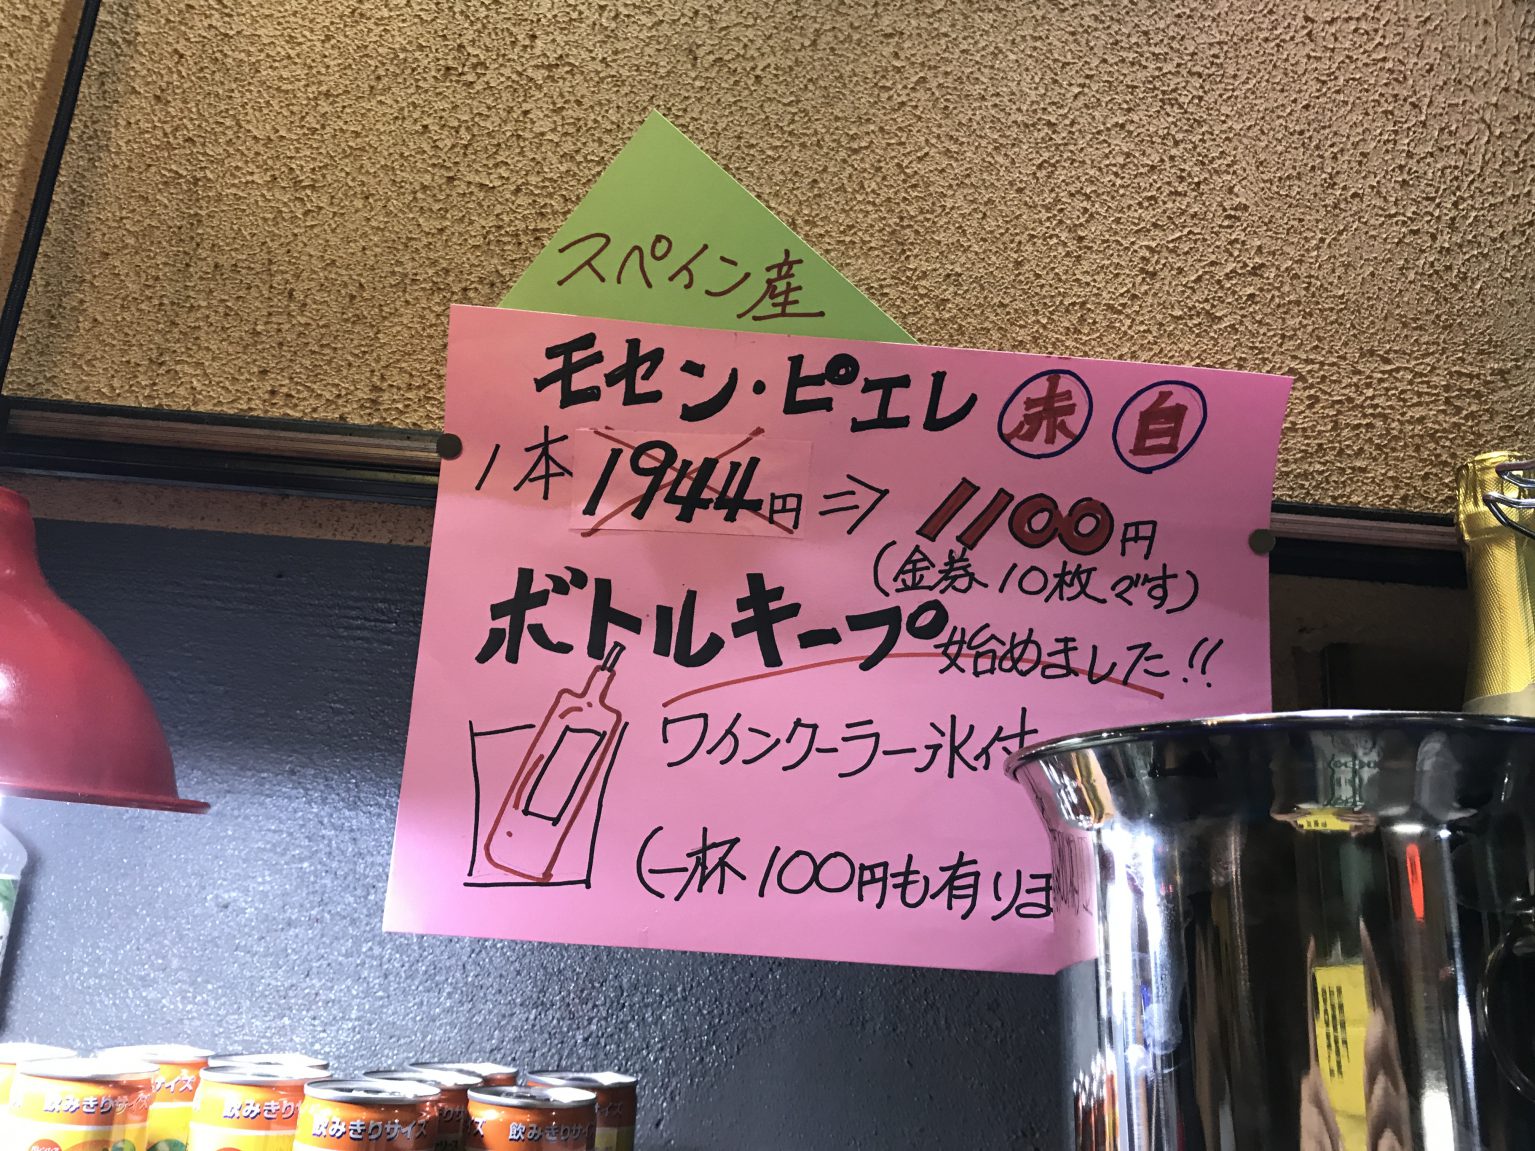 スペイン産
モセン・ピエレ 赤 白
1本 1944円 ⇒ 1100円
(金券10枚です)
ボトルキープ始めました!!
ワインクーラー氷付
(一杯100円も有りま
飲みきりサイズ
飲みきり
飲みきりサイズ
飲みきりサイズ